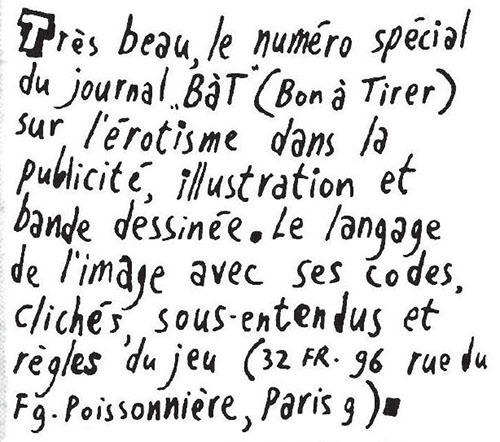 Très beau, le numéro spécial
du journal „BàT" (Bon à Tirer)
sur l'érotisme dans la
publicité, illustration et
bande dessinée. Le langage
de l'image avec ses codes,
clichés, sous-entendus et
règles du jeu (32 FR. 96 rue du
Fg. Poissonnière, Paris 9)